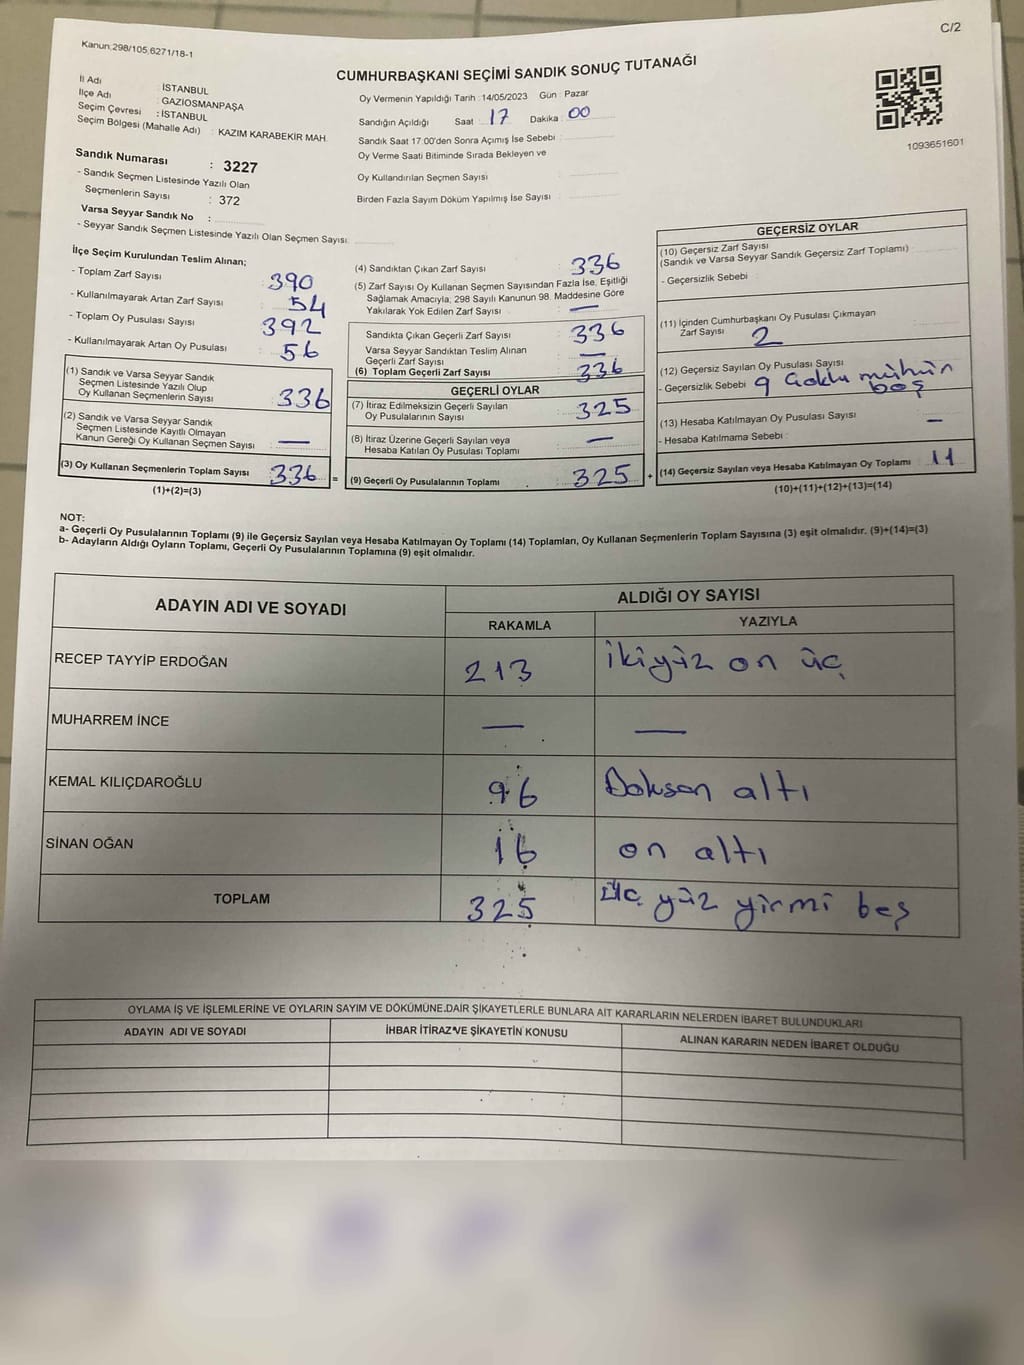 C/2
Kanun:298/105,6271/18-1
CUMHURBAŞKANI SEÇİMİ SANDIK SONUÇ TUTANAĞI
İl Adı : İSTANBUL
İlçe Adı : GAZİOSMANPAŞA
Seçim Çevresi : İSTANBUL
Seçim Bölgesi (Mahalle Adı) : KAZIM KARABEKİR MAH.
Sandık Numarası : 3227
- Sandık Seçmen Listesinde Yazılı Olan
Seçmenlerin Sayısı : 372
Varsa Seyyar Sandık No :
- Seyyar Sandık Seçmen Listesinde Yazılı Olan Seçmen Sayısı
Oy Vermenin Yapıldığı Tarih : 14/05/2023 Gün : Pazar
Sandığın Açıldığı Saat : 17 Dakika : 00
Sandık Saat 17:00'den Sonra Açımış İse Sebebi :
Oy Verme Saati Bitiminde Sırada Bekleyen ve
Oy Kullandırılan Seçmen Sayısı
Birden Fazla Sayım Döküm Yapılmış İse Sayısı
1093651601
İlçe Seçim Kurulundan Teslim Alınan;
- Toplam Zarf Sayısı : 390
- Kullanılmayarak Artan Zarf Sayısı : 54
- Toplam Oy Pusulası Sayısı : 392
- Kullanılmayarak Artan Oy Pusulası : 56
(1) Sandık ve Varsa Seyyar Sandık
Seçmen Listesinde Yazılı Olup
Oy Kullanan Seçmenlerin Sayısı : 336
(2) Sandık ve Varsa Seyyar Sandık
Seçmen Listesinde Kayıtlı Olmayan
Kanun Gereği Oy Kullanan Seçmen Sayısı : —
(3) Oy Kullanan Seçmenlerin Toplam Sayısı : 336 =
(1)+(2)=(3)
(4) Sandıktan Çıkan Zarf Sayısı : 336
(5) Zarf Sayısı Oy Kullanan Seçmen Sayısından Fazla İse, Eşitliği
Sağlamak Amacıyla; 298 Sayılı Kanunun 98. Maddesine Göre
Yakılarak Yok Edilen Zarf Sayısı : —
Sandıkta Çıkan Geçerli Zarf Sayısı : 336
Varsa Seyyar Sandıktan Teslim Alınan
Geçerli Zarf Sayısı : —
(6) Toplam Geçerli Zarf Sayısı : 336
GEÇERLİ OYLAR
(7) İtiraz Edilmeksizin Geçerli Sayılan
Oy Pusulalarının Sayısı : 325
(8) İtiraz Üzerine Geçerli Sayılan veya
Hesaba Katılan Oy Pusulası Toplamı : —
(9) Geçerli Oy Pusulalarının Toplamı : 325 +
GEÇERSİZ OYLAR
(10) Geçersiz Zarf Sayısı
(Sandık ve Varsa Seyyar Sandık Geçersiz Zarf Toplamı) :
- Geçersizlik Sebebi :
(11) İçinden Cumhurbaşkanı Oy Pusulası Çıkmayan
Zarf Sayısı : 2
(12) Geçersiz Sayılan Oy Pusulası Sayısı
- Geçersizlik Sebebi 9 Çoklu mühür
boş
(13) Hesaba Katılmayan Oy Pusulası Sayısı : —
- Hesaba Katılmama Sebebi :
(14) Geçersiz Sayılan veya Hesaba Katılmayan Oy Toplamı : 11
(10)+(11)+(12)+(13)=(14)
NOT:
a- Geçerli Oy Pusulalarının Toplamı (9) ile Geçersiz Sayılan veya Hesaba Katılmayan Oy Toplamı (14) Toplamları, Oy Kullanan Seçmenlerin Toplam Sayısına (3) eşit olmalıdır. (9)+(14)=(3)
b- Adayların Aldığı Oyların Toplamı, Geçerli Oy Pusulalarının Toplamına (9) eşit olmalıdır.
ADAYIN ADI VE SOYADI ALDIĞI OY SAYISI
RAKAMLA YAZIYLA
RECEP TAYYİP ERDOĞAN 213 ikiyüz on üç
MUHARREM İNCE — —
KEMAL KILIÇDAROĞLU 96 Doksan altı
SİNAN OĞAN 16 on altı
TOPLAM 325 üç yüz yirmi beş
OYLAMA İŞ VE İŞLEMLERİNE VE OYLARIN SAYIM VE DÖKÜMÜNE DAİR ŞİKAYETLERLE BUNLARA AİT KARARLARIN NELERDEN İBARET BULUNDUKLARI
ADAYIN ADI VE SOYADI İHBAR İTİRAZ VE ŞİKAYETİN KONUSU ALINAN KARARIN NEDEN İBARET OLDUĞU